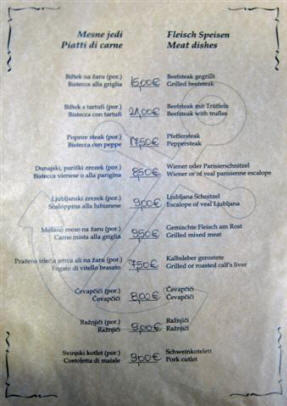 Mesne jedi Fleisch Speisen
Piatti di carne Meat dishes
Biftek na žaru (por.) 15,00€ Beefsteak gegrillt
Bistecca alla griglia Grilled beefsteak
Biftek s tartufi (por.) 21,00€ Beefsteak mit Trüffeln
Bistecca con tartufi Beefsteak with truffles
Popprov steak (por.) 17,50€ Pfeffersteak
Bistecca con peppe Peppersteak
Dunajski, pariški zrezek (por.) 8,50€ Wiener oder Parisierschnitzel
Bistecca vienese o alla parigina Wiener or of veal parisienne escalope
Ljubljanski zrezek (por.) 9,00€ Ljubljana Schnitzel
Scaloppina alla lubianese Escalope of veal Ljubljana
Mešano meso na žaru (por.) 9,50€ Gemischte Fleisch am Rost
Carne mista alla griglia Grilled mixed meat
Pražena telečja jetrca ali na žaru (por.) 7,50€ Kalbsleber gerostete
Fegato di vitello brasato Grilled or roasted calf's liver
Čevapčiči (por.) 8,00€ Čevapčiči
Čevapčiči Čevapčiči
Ražnjiči (por.) 9,00€ Ražnjiči
Ražnjiči Ražnjiči
Svinjski kotlet (por.) 9,00€ Schweinkotelett
Costoletta di maiale Pork cutlet